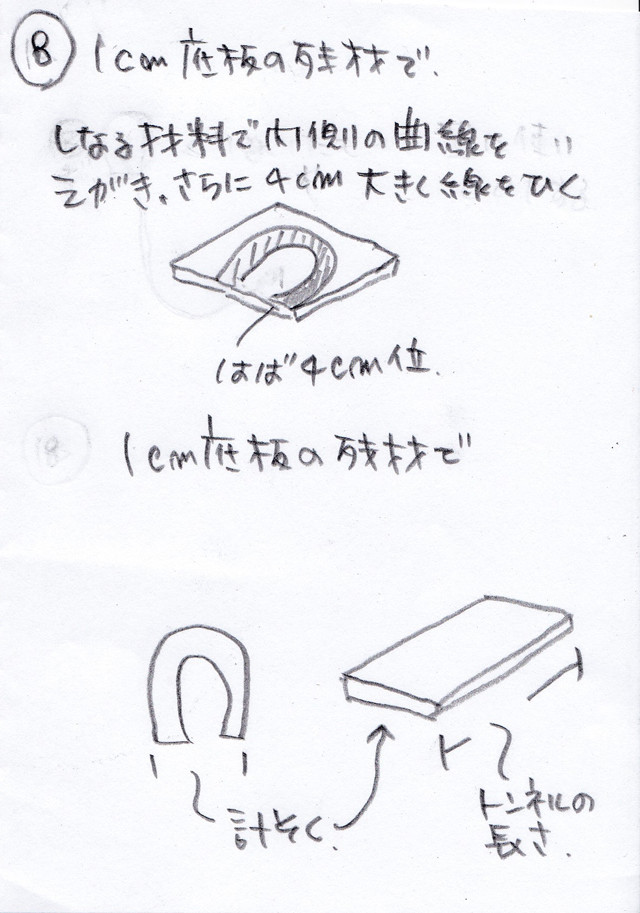 8 1cm底板の残材で.
しなる材料で内側の曲線を
えがき、さらに4cm大きく線をひく
はば4cm位.
1cm底板の残材で
計そく.
トンネルの
長さ.